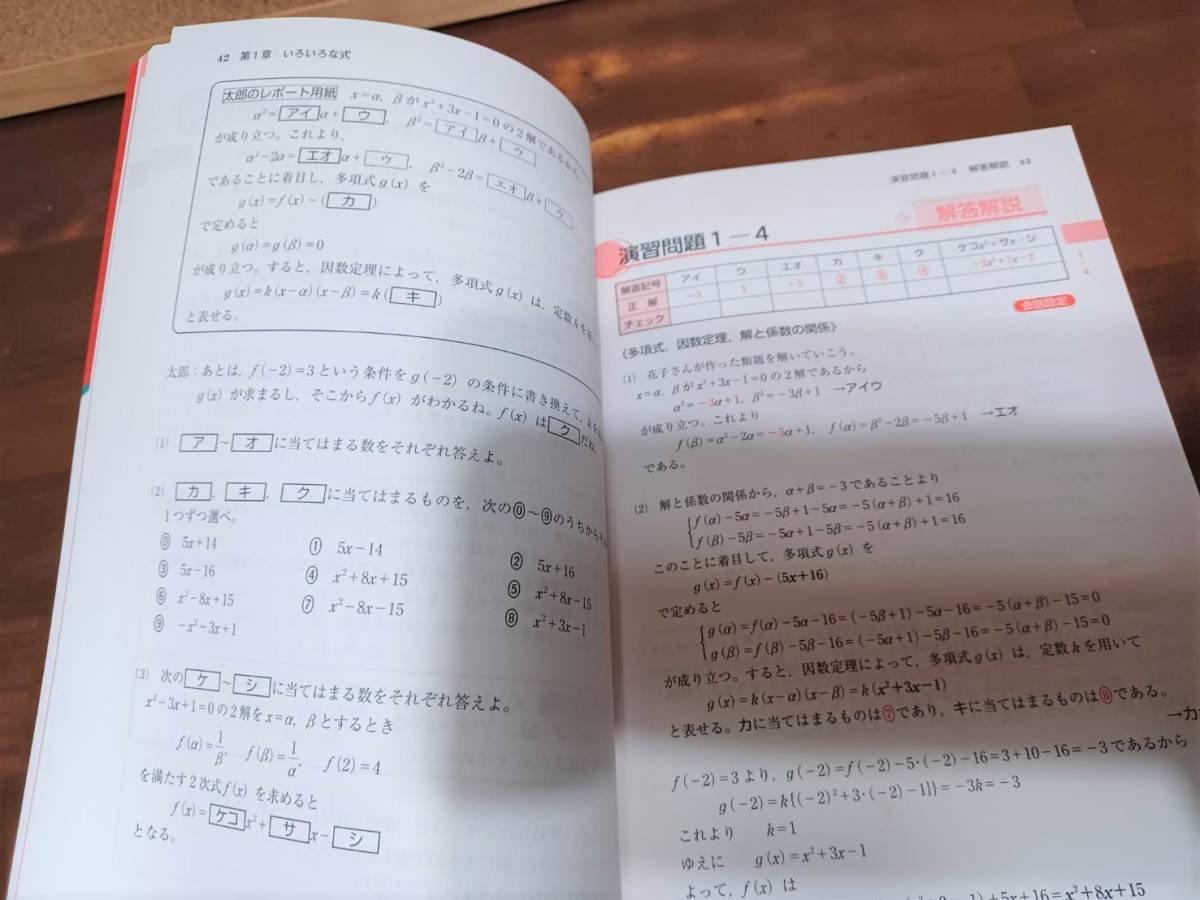 42 第1章 いろいろな式
太郎のレポート用紙 x=α, βがx²+3x-1=0の2解であるから,
α²=アイα+ウ, β²=アイβ+ウ
が成り立つ。これより,
α²-2α=エオα+ウ, β²-2β=エオβ+ウ
であることに着目し,多項式g(x)を
g(x)=f(x)-(カ)
で定めると
g(α)=g(β)=0
が成り立つ。すると,因数定理によって,多項式g(x)は,定数kを用
g(x)=k(x-α)(x-β)=k(キ)
と表せる。
太郎:あとは, f(-2)=3という条件をg(-2)の条件に書き換えて, kを
g(x)が求まるし,そこからf(x)がわかるね。f(x)はクだね。
(1) ア~オに当てはまる数をそれぞれ答えよ。
(2) カ, キ, クに当てはまるものを,次の⓪~⑨のうちから
1つずつ選べ。
⓪ 5x+14 ① 5x-14 ② 5x+16
③ 5x-16 ④ x²+8x+15 ⑤ x²+8x-15
⑥ x²-8x+15 ⑦ x²-8x-15 ⑧ x²+3x-1
⑨ -x²-3x+1
(3) 次のケ~シに当てはまる数をそれぞれ答えよ。
x²-3x+1=0の2解をx=α, βとするとき
f(α)=1/β, f(β)=1/α, f(2)=4
を満たす2次式f(x)を求めると
f(x)=ケコx²+サx-シ
となる。
演習問題1-4 解答解説 43
解答解説
演習問題1-4
解答記号 アイ ウ エオ カ キ ク ケコx²+サx-シ
正解 -3 1 -5 ② ⑧ ④ -2x²+7x-2
チェック
1-4
会話設定
《多項式,因数定理,解と係数の関係》
(1) 花子さんが作った類題を解いていこう。
x=α, βがx²+3x-1=0の2解であるから
α²=-3α+1, β²=-3β+1 →アイウ
が成り立つ。これより
f(β)=α²-2α=-5α+1, f(α)=β²-2β=-5β+1 →エオ
である。
(2) 解と係数の関係から, α+β=-3であることより
f(α)-5α=-5β+1-5α=-5(α+β)+1=16
f(β)-5β=-5α+1-5β=-5(α+β)+1=16
このことに着目して,多項式g(x)を
g(x)=f(x)-(5x+16)
で定めると
g(α)=f(α)-5α-16=(-5β+1)-5α-16=-5(α+β)-15=0
g(β)=f(β)-5β-16=(-5α+1)-5β-16=-5(α+β)-15=0
が成り立つ。すると,因数定理によって,多項式g(x)は,定数kを用いて
g(x)=k(x-α)(x-β)=k(x²+3x-1)
と表せる。カに当てはまるものは②であり,キに当てはまるものは⑧である。
→カ
f(-2)=3より, g(-2)=f(-2)-5·(-2)-16=3+10-16=-3であるから
g(-2)=k{(-2)²+3·(-2)-1}}=-3k=-3
これより k=1
ゆえに g(x)=x²+3x-1
よって, f(x)は
+5x+16=x²+8x+15